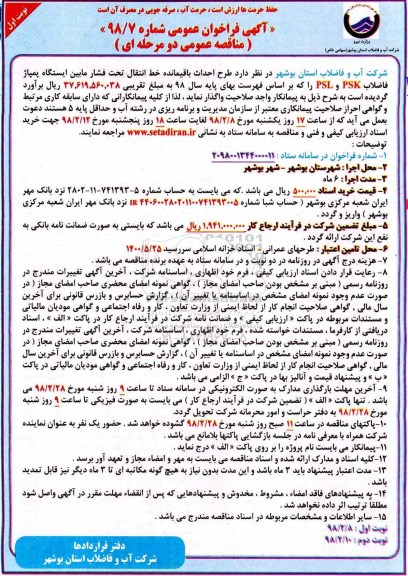 حفظ حرمت ها ارزش است ، حرمت آب ، صرفه جویی در مصرف آن است
نوبت اول
« آگهی فراخوان عمومی شماره ۹۸/۷
( مناقصه عمومی دو مرحله ای )
وزارت نیرو
شرکت آب و فاضلاب استان بوشهر(سهامی خاص)
شرکت آب و فاضلاب استان بوشهر در نظر دارد طرح احداث باقیمانده خط انتقال تحت فشار مابین ایستگاه پمپاژ
فاضلاب PSK و PSL را که بر اساس فهرست بهای پایه سال ۹۸ به مبلغ تقریبی ۳۷،۶۱۹،۵۶۰،۰۳۸ ریال برآورد
گردیده است به شرح ذیل به پیمانکار واجد صلاحیت واگذار نماید ، لذا از کلیه پیمانکارانی که دارای سابقه کاری مرتبط
و گواهی احراز صلاحیت پیمانکاری معتبر از سازمان مدیریت و برنامه ریزی در رشته آب و حداقل پایه ۵ هستند دعوت
بعمل می آید که از ساعت ۱۷ روز یکشنبه مورخ ۹۸/۲/۸ لغایت ساعت ۱۸ روز پنجشنبه مورخ ۹۸/۲/۱۲ جهت خرید
اسناد ارزیابی کیفی و فنی و مناقصه به سامانه ستاد به نشانی www.setadiran.ir مراجعه نمایند.
۱- شماره فراخوان در سامانه ستاد : ۲۰۹۸۰۰۱۳۴۴۰۰۰۰۱۱
۲- محل اجرا : شهرستان بوشهر - شهر بوشهر
۳- مدت اجرا : ۶ ماه
۴- قیمت خرید اسناد ۵۰۰،۰۰۰ ریال می باشد .که می بایست به حساب شماره ۵-۷۴۱۳۹۳-۱۱-۲۸۰۲ نزد بانک مهر
ایران شعبه مرکزی بوشهر ( حساب شبا شماره نزد بانک مهر ایران شعبه مرکزی
بوشهر ) واریز و گردد .
۵- مبلغ تضمین شرکت در فرآیند ارجاع کار ۱،۹۴۱،۰۰۰،۰۰۰ ریال می باشد که بایستی به صورت ضمانت نامه بانکی به
نفع این شرکت ارائه گردد .
۶- محل تامین اعتبار : طرحهای عمرانی - اسناد خزانه اسلامی سررسید ۱۴۰۰/۵/۲۵
۷- هزینه درج آگهی در روزنامه در دو نوبت و در سامانه ستاد به عهده برنده مناقصه می باشد.
۸- رعایت قرار دادن اسناد ارزیابی کیفی ، فرم خود اظهاری ، اساسنامه شرکت ، آخرین آگهی تغییرات مندرج در
روزنامه رسمی ( مبنی بر مشخص بودن صاحب امضای مجاز ) ، گواهی نمونه امضای محضری صاحب امضای مجاز ( در
صورت عدم وجود نمونه امضای مشخص در اساسنامه یا تغییر آن ) ، گزارش حسابرس و بازرس قانونی برای آخرین
سال مالی ، گواهی صلاحیت انجام کار از لحاظ ایمنی از وزارت تعاون ، کار و رفاه اجتماعی و گواهی مودیان مالیاتی
و مستندات مربوطه در پاکت « ارزیابی کیفی » و ضمانت نامه شرکت در فرآیند ارجاع کار در پاکت « الف » ، اسناد
دریافتی از کارفرما ، مستندات خواسته شده ، فرم خود اظهاری ، اساسنامه شرکت ، آخرین آگهی تغییرات مندرج در
روزنامه رسمی ( مبنی بر مشخص بودن صاحب امضای مجاز ) ، گواهی نمونه امضای محضری صاحب امضای مجاز ( در
صورت عدم وجود نمونه امضای مشخص در اساسنامه یا تغییر آن ) ، گزارش حسابرس و بازرس قانونی برای آخرین سال
مالی ، گواهی صلاحیت انجام کار از لحاظ ایمنی از وزارت تعاون ، کار و رفاه اجتماعی و گواهی مودیان مالیاتی در پاکت
« ب » و پیشنهاد قیمت و آنالیز بها در پاکت « ج » الزامی می باشد .
۹- آخرین مهلت بارگذاری مدارک به صورت الکترونیکی در سامانه ستاد تا ساعت ۹ روز شنبه مورخ ۹۸/۲/۲۸ می
باشد . تنها پاکت « الف » ( تضمین شرکت در فرآیند ارجاع کار ) می بایست به صورت فیزیکی تا ساعت ۹ روز شنبه
مورخ ۹۸/۲/۲۸ به دفتر حراست و امور محرمانه شرکت تحویل گردد.
۱۰-پاکتهای مناقصه در ساعت ۱۱ صبح روز شنبه مورخ ۹۸/۲/۲۸ گشوده خواهد شد . حضور یک نفر به عنوان نماینده
شرکت همراه با معرفی نامه در جلسه بازگشایی پاکتها بلامانع می باشد .
۱۱-پیمانکار می بایست نام پروژه را بر روی پاکت « الف » درج نماید .
۱۲-کلیه اسناد و مدارک ارائه شده و اسناد مناقصه می بایست به مهر و امضاء مجاز و تعهد آور برسد .
۱۳- مدت اعتبار پیشنهاد باید ۳ ماه باشد و این مدت بدون نیاز به هیچ گونه مکاتبه ای تا ۳ ماه دیگر نیز قابل تمدید
باشد .
۱۴- به پیشنهادهای فاقد امضاء ، مشروط ، مخدوش و پیشنهادهایی که پس از انقضاء مهلت مقرر در آگهی واصل شود
مطلقا ترتیب اثر داده نخواهد شد .
۱۵- سایر اطلاعات و مشخصات مربوطه در اسناد مناقصه مندرج می باشد .
نوبت اول : ۹۸/۲/۸
نوبت دوم : ۹۸/۲/۱۰
دفتر قراردادها
شرکت آب و فاضلاب استان بوشهر